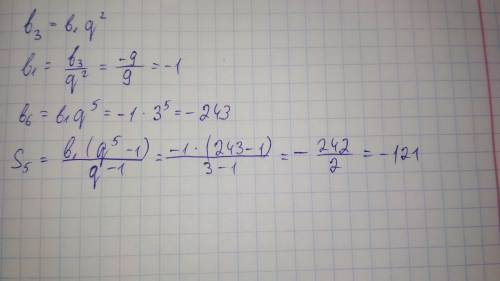 b₃ = b₁ q²
b₁ = b₃/q² = -9/9 = -1
b₆ = b₁q⁵ = -1 · 3⁵ = -243
S₅ = b₁(q⁵-1)/q-1 = -1·(243-1)/3-1 = - 242/2 = -121